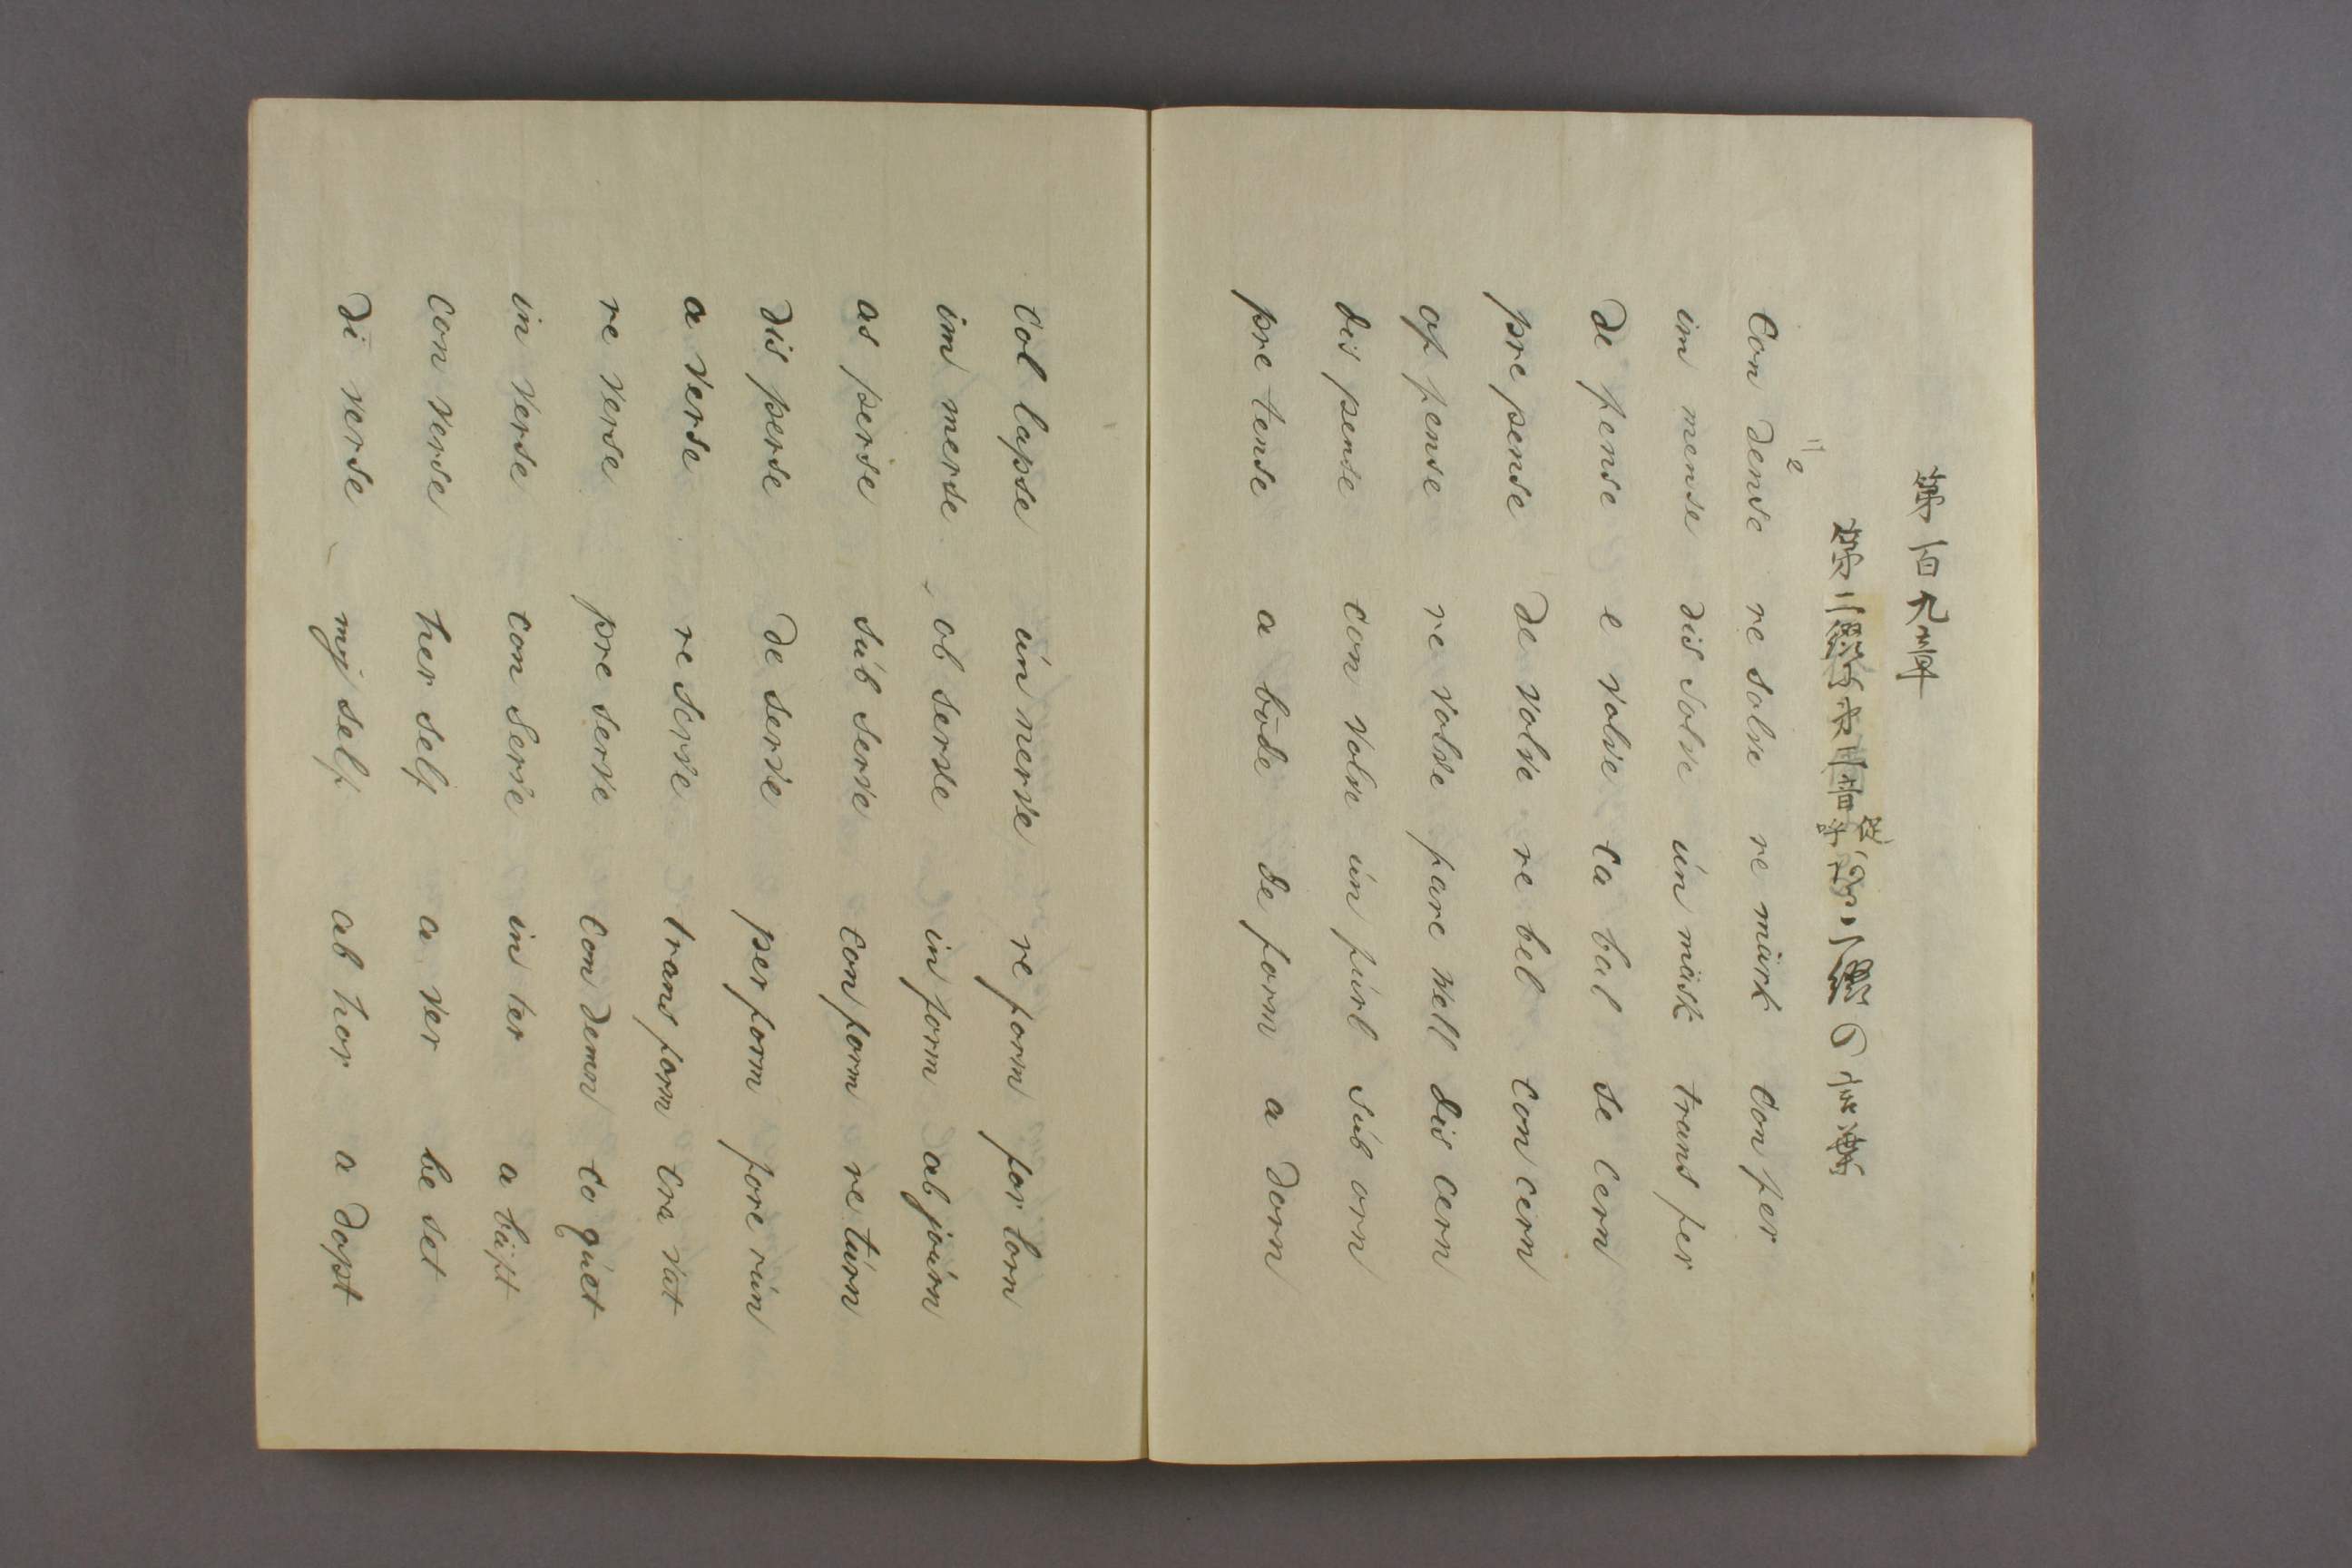 第百九章
第二綴字第一音促呼の二綴の言葉
2
Con dense re solve re märk con fer
im mense dis solve ún mäsk trans fer
de fense e volve ca bal se cern
pre pense de volve re bel con cern
of fense re volve fare well dis cern
dis pense con volve ún fúrl súb orn
pre tense a bōde de form a dorn
Col lapse ún nerve re form for lorn
im merse ob serve in form ad joúrn
as perse súb serve con form re túrn
dis perse de serve per form fore rún
a verse re serve trans form cra vat
re verse pre serve con demn co qúet
in verse con serve in ter a báft
con verse her self a ver be set
di verse mȳ self ab hor a dopt